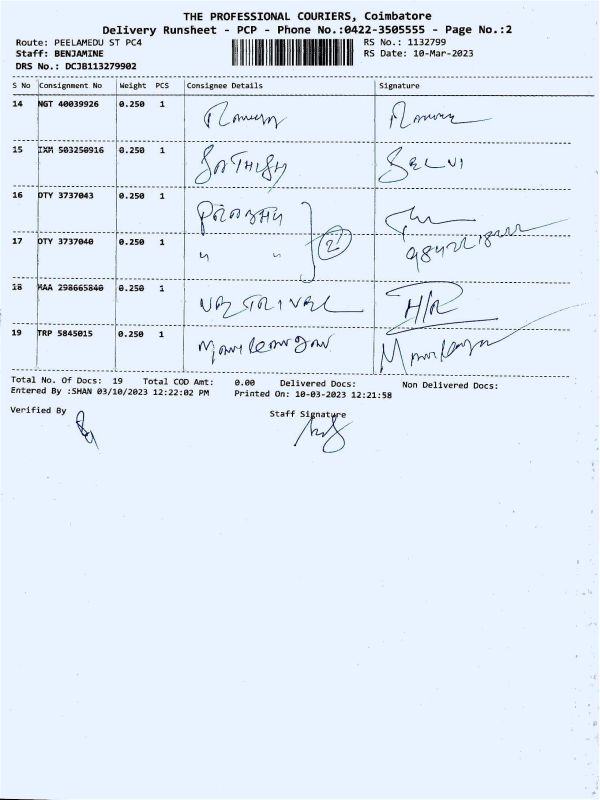 THE PROFESSIONAL COURIERS, Coimbatore
Delivery Runsheet - PCP - Phone No.:0422-3505555 - Page No.:2
Route: PEELAMEDU ST PC4 RS No.: 1132799
Staff: BENJAMINE RS Date: 10-Mar-2023
DRS No.: DCJB113279902
S No Consignment No Weight PCS Consignee Details Signature
14 NGT 40039926 0.250 1
15 IXM 503250916 0.250 1 SATHISH SELVI
16 OTY 3737043 0.250 1
17 OTY 3737040 0.250 1 " " 2
18 MAA 298665840 0.250 1 VETRIVEL H/R
19 TRP 5845015 0.250 1
Total No. Of Docs: 19 Total COD Amt: 0.00 Delivered Docs: Non Delivered Docs:
Entered By :SHAN 03/10/2023 12:22:02 PM Printed On: 10-03-2023 12:21:58
Verified By Staff Signature